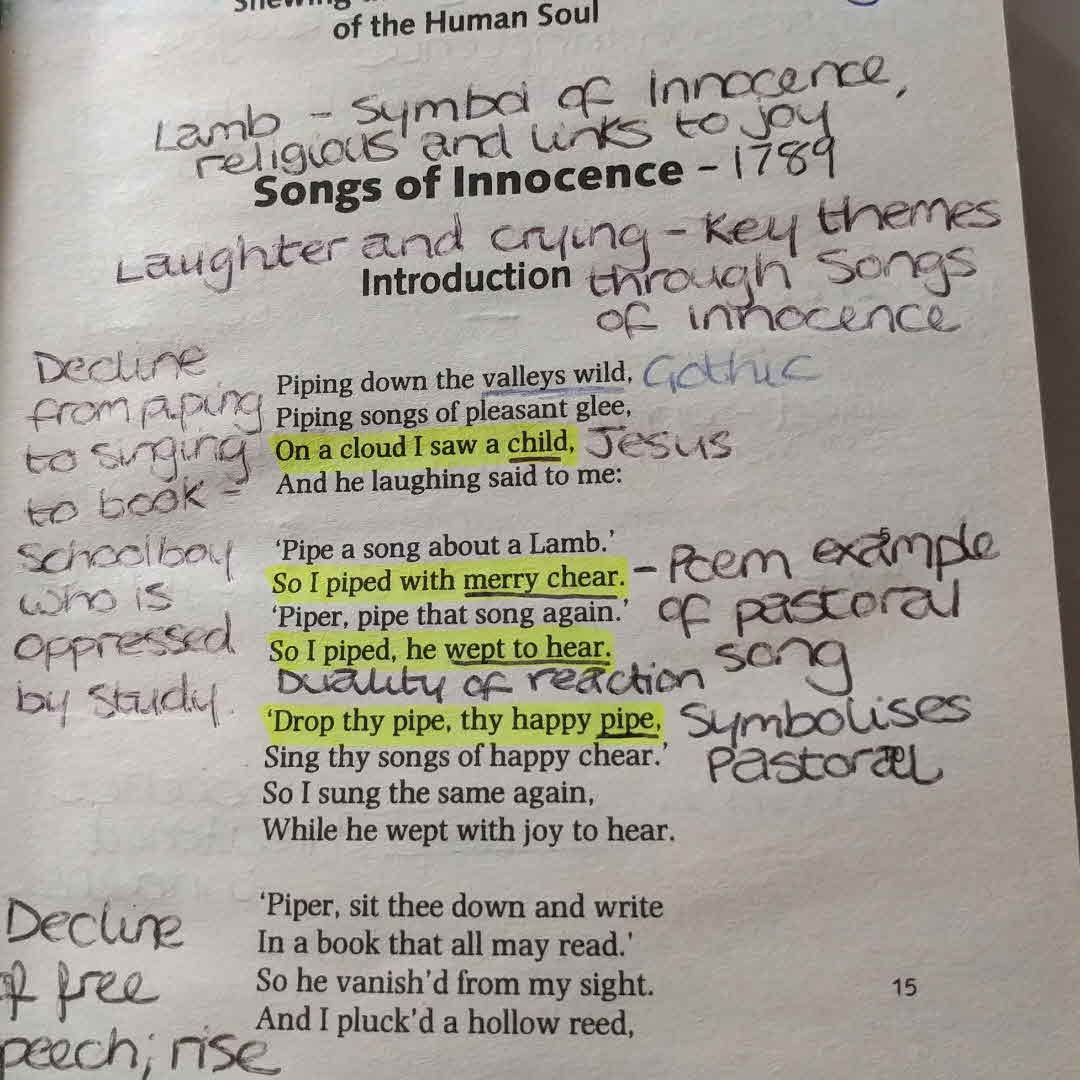 of the Human Soul
Lamb - Symbol of Innocence,
religious and links to joy
Songs of Innocence - 1789
Laughter and crying - Key themes
Introduction through Songs
of innocence
Decline
from piping
to singing
to book -
Schoolboy
who is
oppressed
by study.
Piping down the valleys wild, Gothic
Piping songs of pleasant glee,
On a cloud I saw a child, Jesus
And he laughing said to me:
‘Pipe a song about a Lamb.’
So I piped with merry chear. - Poem example
‘Piper, pipe that song again.’ of pastoral
So I piped, he wept to hear. song
Duality of reaction
‘Drop thy pipe, thy happy pipe, Symbolises
Sing thy songs of happy chear.’ Pastoral
So I sung the same again,
While he wept with joy to hear.
‘Piper, sit thee down and write
In a book that all may read.’
So he vanish'd from my sight.
And I pluck'd a hollow reed,
Decline
of free
peech; rise
15